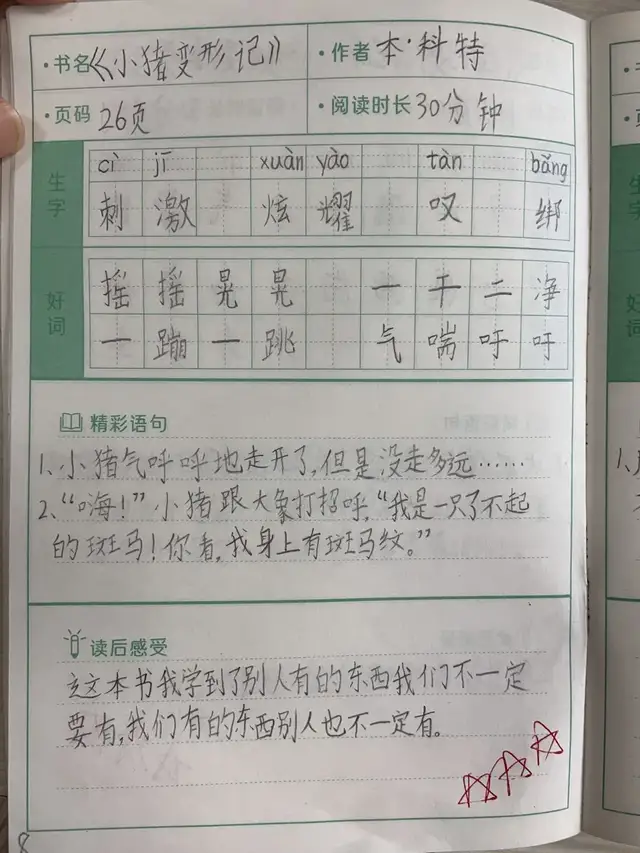 ·书名《小猪变形记》 ·作者 本·科特
·页码 26页 ·阅读时长 30分钟
生字
cì jī xuàn yào tàn bǎng
刺 激 炫 耀 叹 绑
好词
摇 摇 晃 晃 一 干 二 净
一 蹦 一 跳 气 喘 吁 吁
精彩语句
1、小猪气呼呼地走开了,但是没走多远……
2、“嗨!”小猪跟大象打招呼,“我是一只了不起
的斑马!你看,我身上有斑马纹。”
读后感受
这本书我学到了别人有的东西我们不一定
要有,我们有的东西别人也不一定有。
8